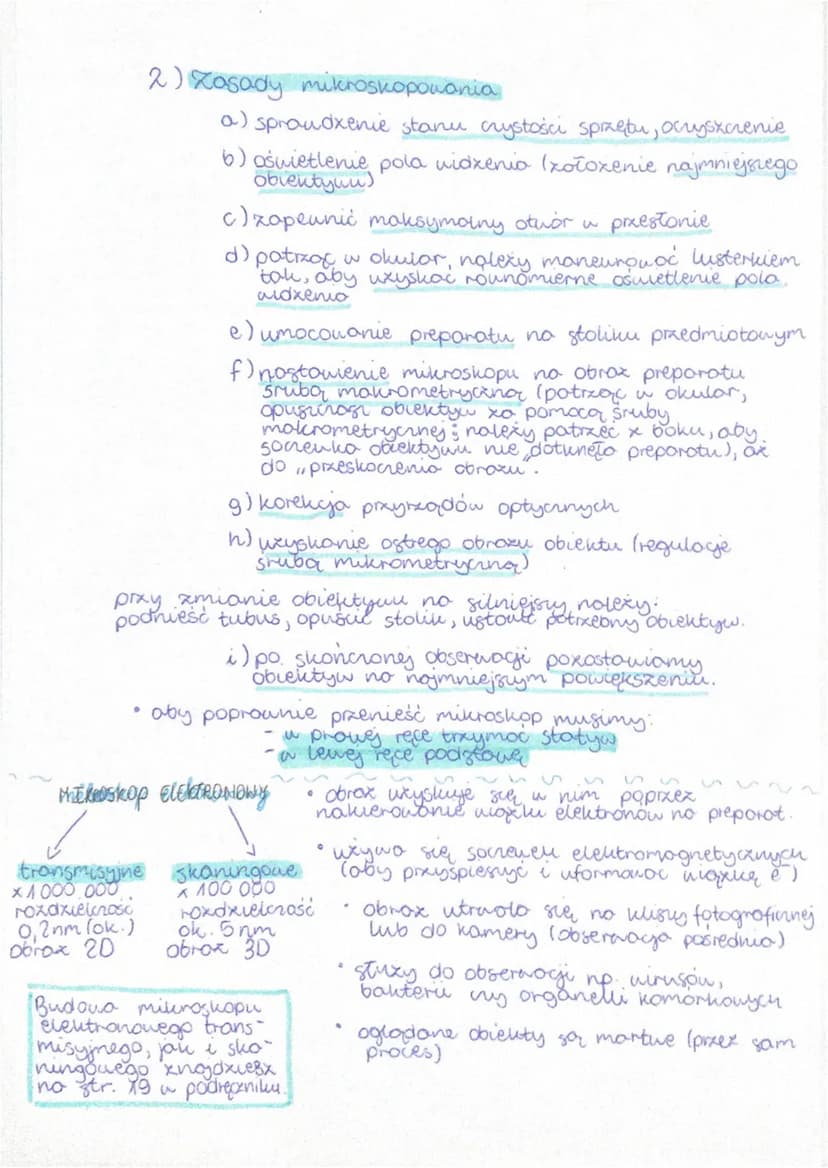 2) Zasady mikroskopowania
a) sprawdzenie stanu czystości sprzętu, oczyszczenie
b) oświetlenie pola widzenia (założenie najmniejszego
obiektywu)
c) zapewnić maksymalny otwór w przesłonie
d) patrząc w okular, należy manewrować lusterkiem
tak, aby uzyskać równomierne oświetlenie pola
widzenia
e) umocowanie preparatu na stoliku przedmiotowym
f) nastawienie mikroskopu na obraz preparatu
śrubą makrometryczną (patrząc w okular,
opuszczasz obiektyw za pomocą śruby
makrometrycznej; należy patrzeć z boku, aby
soczewka obiektywu nie dotknęła preparatu), aż
do „przeskoczenia obrazu".
g) korekcja przyrządów optycznych
h) uzyskanie ostrego obrazu obiektu (regulacje
śrubą mikrometryczną)
przy zmianie obiektywu na silniejszy należy:
podnieść tubus, opuścić stolik, ustawić potrzebny obiektyw.
i) po skończonej obserwacji pozostawiamy
obiektyw na najmniejszym powiększeniu.
• aby poprawnie przenieść mikroskop musimy:
- w prawej ręce trzymać statyw
- w lewej ręce podstawę
MIKROSKOP ELEKTRONOWY
transmisyjne
x 1 000 000
rozdzielczość
0,2 nm (ok.)
obraz 2D
skaningowe
x 100 000
rozdzielczość
ok. 5 nm
obraz 3D
Budowa mikroskopu
elektronowego trans-
misyjnego, jak i ska-
ningowego znajdziesz
na str. 19 w podręczniku.
• obraz uzyskuje się w nim poprzez
nakierowanie wiązki elektronów na preparat.
• używa się soczewek elektromagnetycznych
(aby przyśpieszyć i uformować wiązkę e⁻)
• obraz utrwala się na kliszy fotograficznej
lub do kamery (obserwacja pośrednia)
• służy do obserwacji np. wirusów,
bakterii czy organelli komórkowych
• oglądane obiekty są martwe (przez sam
proces)